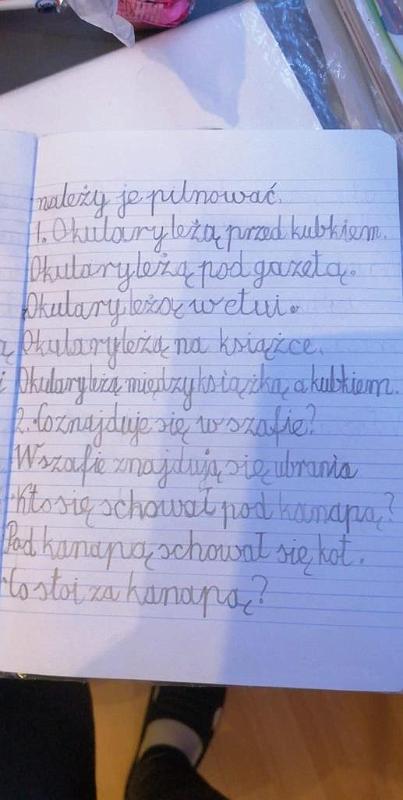 należy je pilnować.
1. Okulary leżą przed kubkiem.
Okulary leżą pod gazetą.
Okulary leżą w etui.
ą Okulary leżą na książce.
i Okulary leżą między książką a kubkiem.
2. Co znajduje się w szafie?
W szafie znajdują się ubrania
Kto się schował pod kanapą?
Pod kanapą schował się kot.
Co stoi za kanapą?